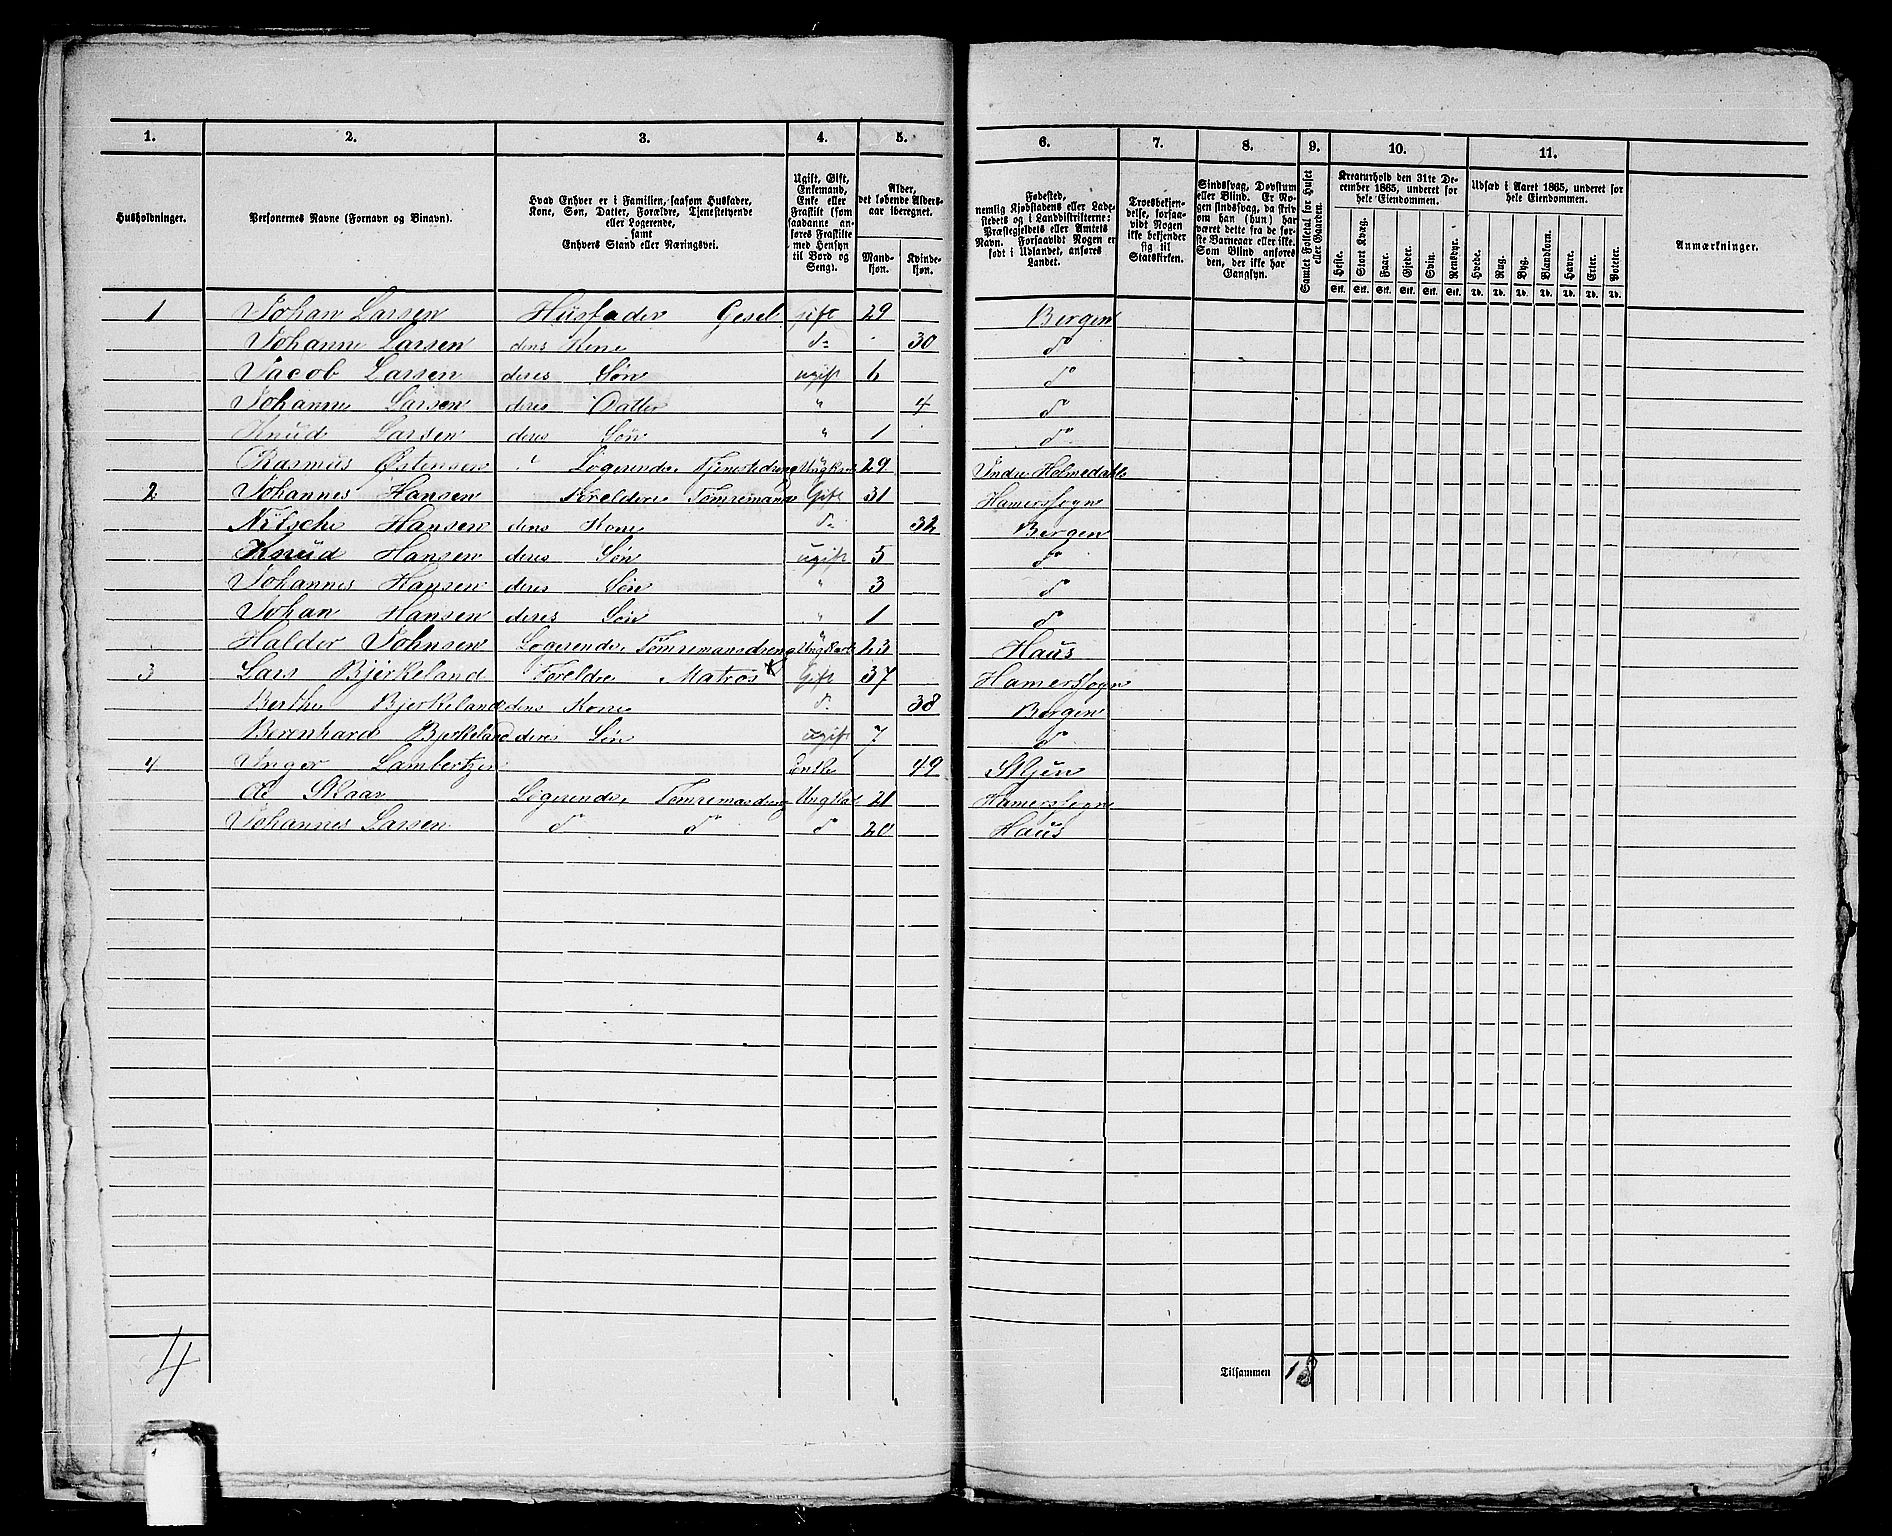 1. 2. 3. 4. 5. 6. 7. 8. 9. 10. 11.
Husholdninger.
Personernes Navne (Fornavn og Binavn).
Hvad Enhver er i Familien, saasom Husfader,
Kone, Søn, Datter, Forældre, Tjenestetyende
eller Logerende,
samt
Enhvers Stand eller Næringsvei.
Ugift, Gift,
Enkemand,
Enke eller
Fraskilt (som
saadanne an-
føres Fraskilte
med Hensyn
til Bord og
Seng).
Alder,
det løbende Alders-
aar iberegnet.
Mand-
kjøn.
Kvinde-
kjøn.
Fødested,
nemlig Kjøbstadens eller Lade-
stedets og i Landdistrikterne:
Præstegjeldets eller Amtets
Navn. Forsaavidt Nogen er
født i Udlandet, anføres
Landet.
Troesbekjen-
delse, forsaa-
vidt Nogen
ikke bekjender
sig til
Statskirken.
Sindssvag, Døvstum
eller Blind. Er No-
gen sindssvag, da skri-
ves om han (hun) har
været dette fra de før-
ste Barneaar eller ikke.
Som Blind anføres
den, der ikke har
Gangsyn.
Samlet Folketal for Huset
eller Gaarden.
Kreaturhold den 31te De-
cember 1865, underet for
hele Eiendommen.
Heste. Stort Kvæg. Faar. Gjeder. Svin. Rensdyr.
Stk. Stk. Stk. Stk. Stk. Stk.
Udsæd i Aaret 1865, underet for
hele Eiendommen.
Hvede. Rug. Byg. Blandkorn. Havre. Erter. Poteter.
Td. Td. Td. Td. Td. Td. Td.
Anmærkninger.
1 Johan Larsen Husfader Gesel gift 29 Bergen
Johanne Larsen dens Kone do 30 do
Jacob Larsen deres Søn ugift 6 do
Johanne Larsen deres Datter " 4 do
Knud Larsen deres Søn " 1 do
Rasmus Østensen Logerende Tjenestedreng Ungkarl 29 Indre Holmedals
2 Johannes Hansen Foreldere Tømremand Gift 31 Hamersogn
Nitsche Hansen dens Kone do 32 Bergen
Knud Hansen deres Søn ugift 5 do
Johannes Hansen deres Søn " 3 do
Johan Hansen deres Søn " 1 do
Haldor Johnsen Logerende Tømremansdreng Ungkarl 23 Haus
3 Lars Bjerkeland Foreldre Matros Gift 37 Hamersogn
Berthe Bjerkeland dens Kone do 38 Bergen
Berenhard Bjerkeland deres Søn ugift 7 do
4 Inger Lambertzen Enke 49
Ole Skaar Logerende Tømremansdreng Ungkarl 21 Hamersogn
Johannes Larsen do do do 20 Haus
4
Tilsammen 18